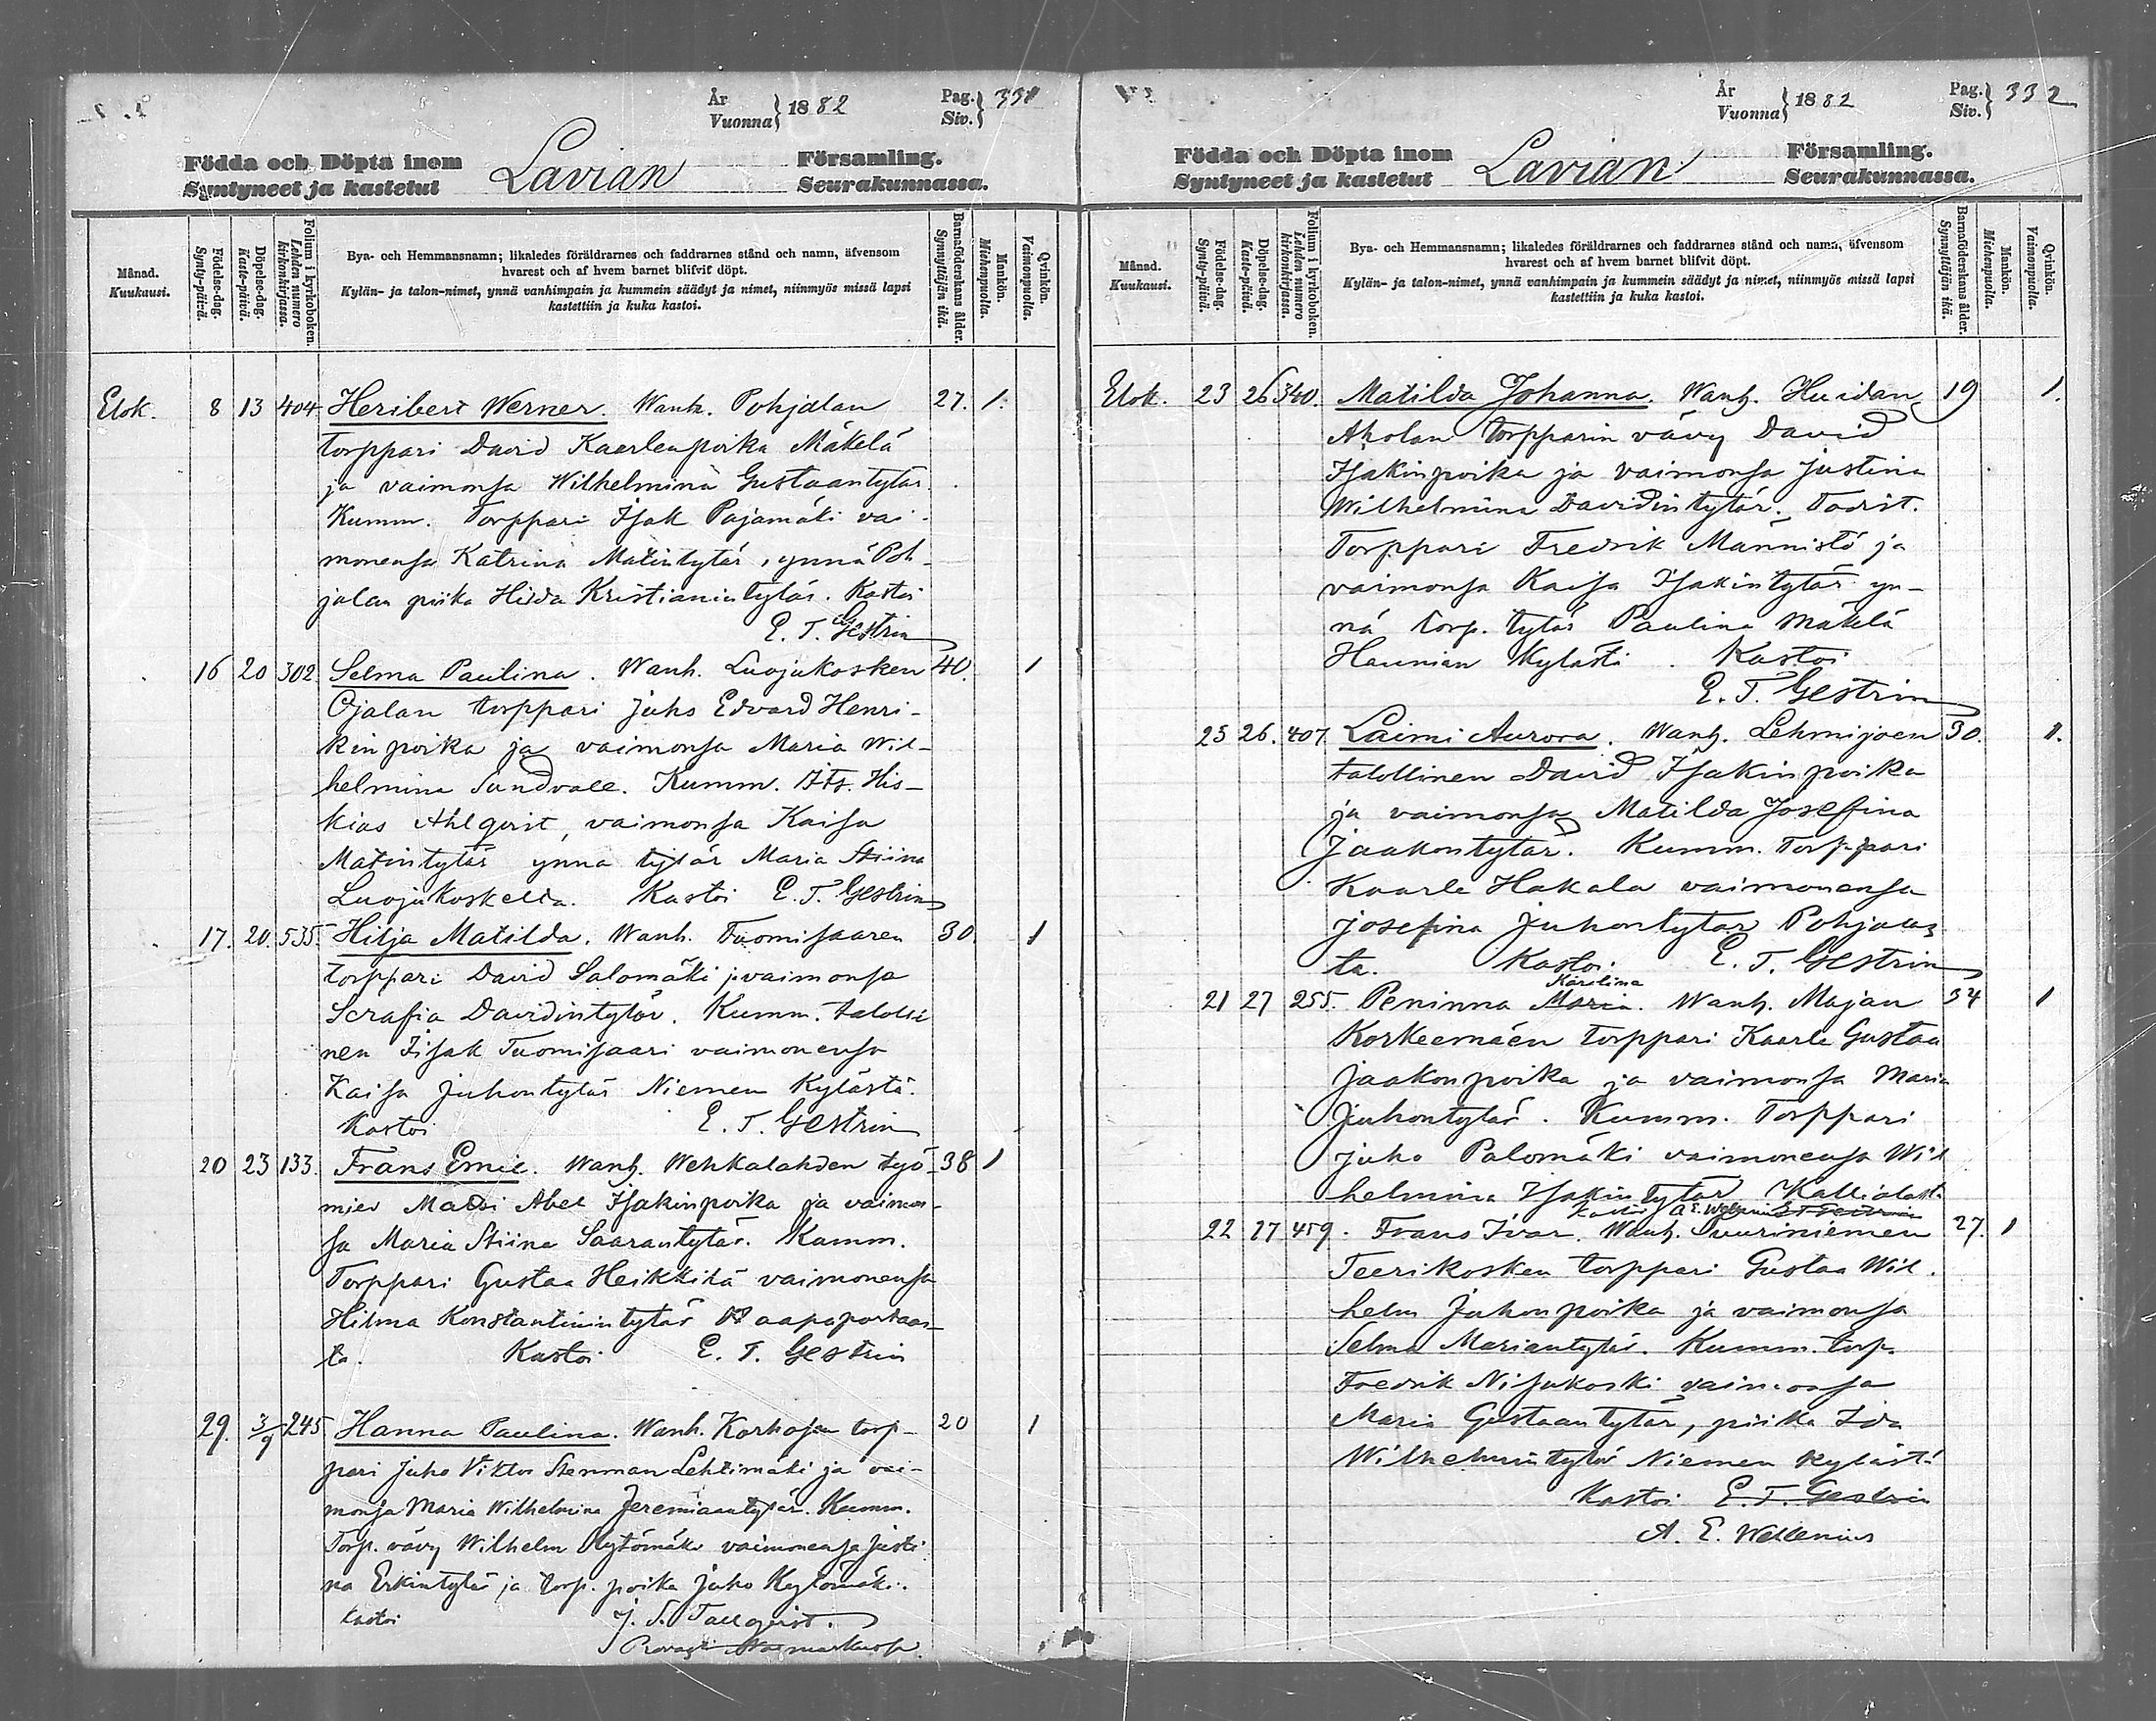 År
Vuonna } 1882
Pag.
Siv. } 331
Födda och Döpta inom
Syntyneet ja kastetut
Lavian
Församling.
Seurakunnassa.
Månad.
Kuukausi.
Födelse-dag.
Synty-päivä.
Döpelse-dag.
Kaste-päivä.
Folium i kyrkoboken.
Lehden numero
kirkonkirjassa.
Bya- och Hemmansnamn; likaledes föräldrarnes och faddrarnes stånd och namn, äfvensom
hvarest och af hvem barnet blifvif döpt.
Kylän- ja talon-nimet, ynnä vanhimpain ja kummein säädyt ja nimet, niinmyös missä lapsi
kastettiin ja kuka kastoi.
Barnaföderskans ålder.
Synnyttäjän ikä.
Mankön.
Miehenpuolta.
Qvinkön.
Vaimonpuolta.
Elok. 8 13 404. Heribert Werner. Wanh. Pohjalan 27. 1.
torppari David Kaarlenpoika Mäkelä
ja vaimonsa Wilhelmina Gustaantytär.
Kumm. Torppari Isak Pajamäki vai-
monensa Katrina Matintytär, ynnä Poh-
jalan piika Hilda Kristianintytär. Kastoi
E. T. Gestrin
16 20 302. Selma Paulina. Wanh. Luojukosken 40. 1
Ojalan torppari Juho Edvard Henri-
kinpoika ja vaimonsa Maria Wil-
helmina Sundvall. Kumm. Its. His-
kias Ahlqvist, vaimonsa Kaisa
Matintytär ynna tytär Maria Stiina
Luojukoskelda. Kastoi E. T. Gestrin
17. 20. 535. Hilja Matilda. Wanh. Tuomisaaren 30. 1
torppari David Salomäki j. vaimonsa
Serafia Davidintytär. Kumm. talolli
nen Iisak Tuomisaari vaimonensa
Kaisa Juhontytär Niemen Kylästä.
Kastoi E. T. Gestrin
20 23 133. Frans Emil. Wanh. Wehkalahden työ- 38 1
mies Matti Abel Isakinpoika ja vaimon-
sa Maria Stiina Saarantytär. Kumm.
Torppari Gustaa Heikkilä vaimonensa
Hilma Konstantinintytär Haapaportaas-
ta. Kastoi E. T. Gestrin
29. 3/9 245 Hanna Paulina. Wanh. Korhosen torp- 20 1
pari Juho Viktor Stenman Lehtimäki ja vai-
monsa Maria Wilhelmina Jeremiaantytär. Kumm.
Torp. vävy Wilhelm Kytömäki vaimonensa Justi
na Erkintytär ja torp. poika Juho Kytömäki.
Kastoi J. S. Tallqvist.
År
Vuonna } 1882
Pag.
Siv. } 332
Födda och Döpta inom
Syntyneet ja kastetut
Lavian
Församling.
Seurakunnassa.
Månad.
Kuukausi.
Födelse-dag.
Synty-päivä.
Döpelse-dag.
Kaste-päivä.
Folium i kyrkoboken.
Lehden numero
kirkonkirjassa.
Bya- och Hemmansnamn; likaledes föräldrarnes och faddrarnes stånd och namn, äfvensom
hvarest och af hvem barnet blifvit döpt.
Kylän- ja talon-nimet, ynnä vanhimpain ja kummein säädyt ja nimet, niinmyös missä lapsi
kastettiin ja kuka kastoi.
Barnaföderskans ålder.
Synnyttäjän ikä.
Mankön.
Miehenpuolta.
Qvinkön.
Vaimonpuolta.
Elok. 23 26 340. Matilda Johanna. Wanh. Huidan 19 1.
Aholan torpparin vävy David
Isakinpoika ja vaimonsa Justina
Wilhelmina Davidintytär. Todist.
Torppari Fredrik Männistö ja
vaimonsa Kaisa Isakintytär yn-
nä torp. tytär Paulina Mäkelä
Haunian Kylästi. Kastoi
E. T. Gestrin
25 26. 407. Laimi Aurora. Wanh. Lehmijoen 30. 1.
talollinen David Isakinpoika
ja vaimonsa Matilda Josefina
Jaakontytär. Kumm. Torppari
Kaarle Hakala vaimonensa
Josefina Juhontytär Pohjalas
ta. Kastoi. E. T. Gestrin
Karolina
21 27 255. Peninna Maria. Wanh. Majan 34 1
Korkeemäen torppari Kaarle Gustaa
Jaakonpoika ja vaimonsa Maria
Juhontytär. Kumm. Torppari
Juho Palomäki vaimonensa Wil
helmina Isakintytär Kalliolast.
Kastoi A. E. Wellenius E. T. Gestrin
22 27 459. Frans Ivar. Wanh. Suuriniemen 27. 1
Teerikosken torppari Gustaa Wil.
helm Juhonpoika ja vaimonsa
Selma Mariantytär. Kumm. torp.
Fredrik Nisukoski vaimonsa
Maria Gustaantytär, piika Ida
Wilhelmintytär Niemen kylästä
Kastoi E. T. Gestrin
A. E. Wellenius